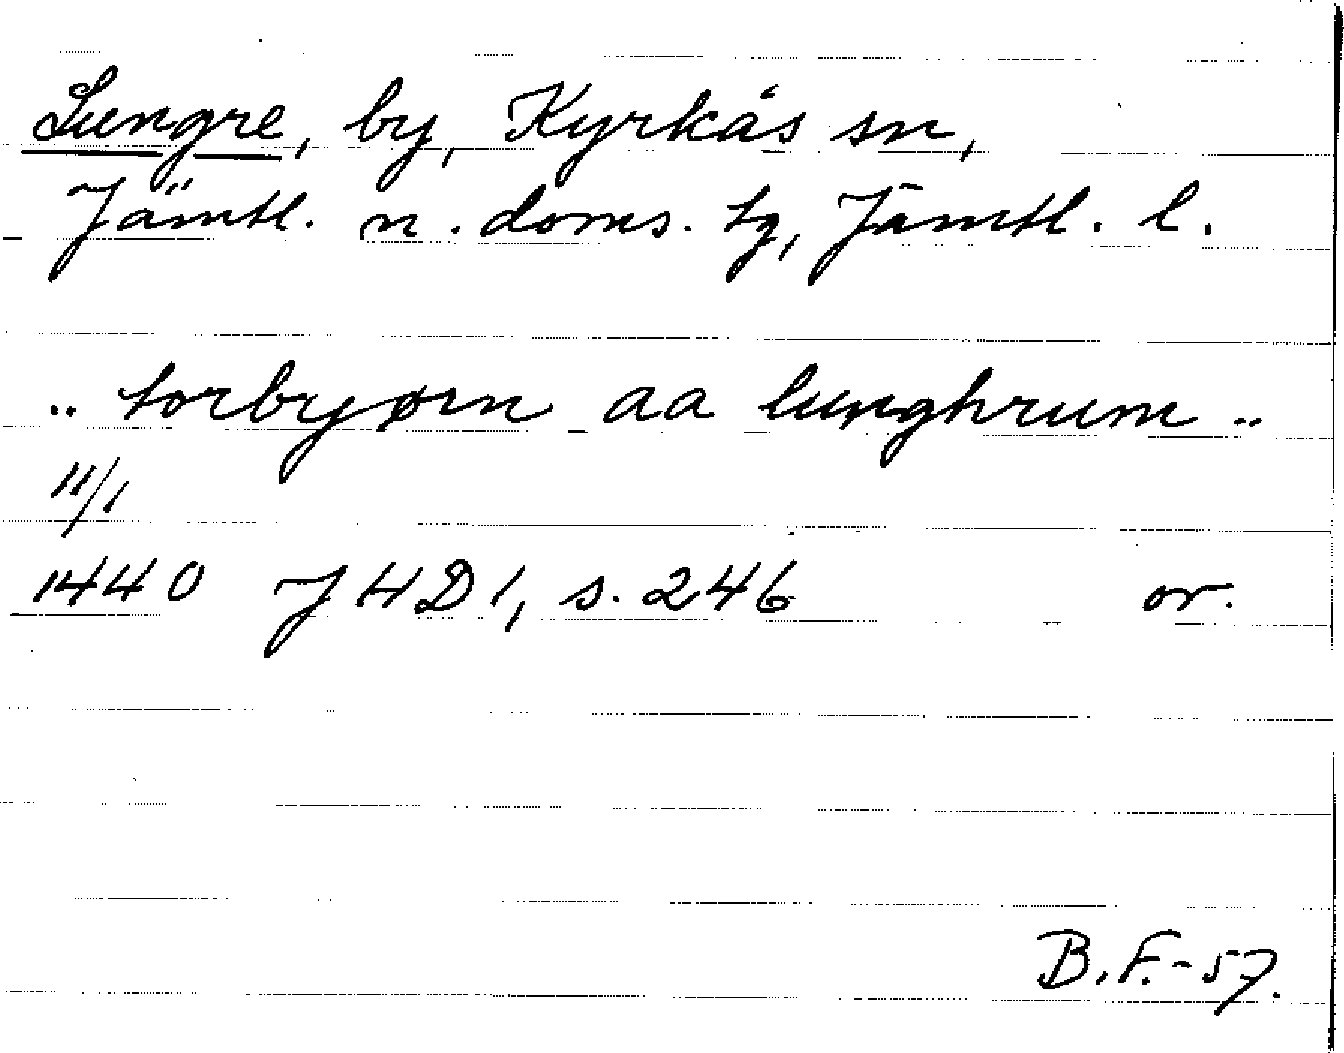 Lungre, by, Kyrkås sn,
Jämtl. n. doms. tg, Jämtl. l.
.. torbyørn aa lunghrum ..
11/1
1440 JHD1, s. 246 or.
B.F.-57.